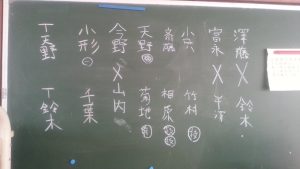 深 X 鈴木
富永 X
小六 竹村
斎藤 相原
天野 菊地
今野 X 山内
小形 千葉
T天野 T鈴木